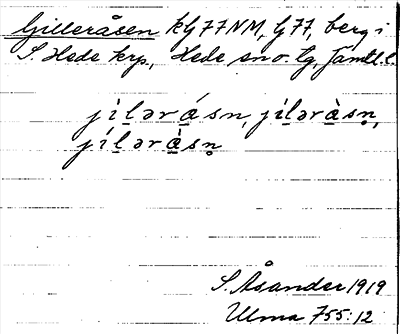 Gilleråsen kfj 77 NM, fj 77, berg i
S. Hede krp., Hede sn o. tg, Jämtl. l.
jìlərá̱sn, jílərà̱sṇ,
jílərà̱sṇ
S. Åsander 1919
Ulma 755:12